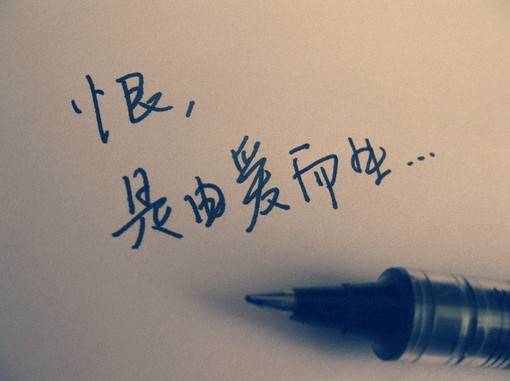 恨,
是由爱而生...